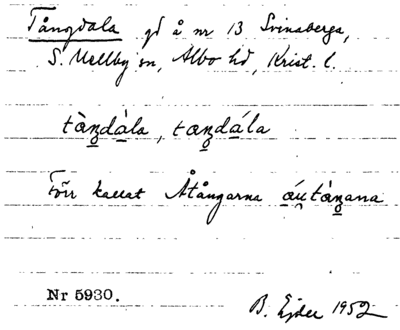 Tångdala gd å nr 13 Svinaberga,
S. Mellby sn, Albo hd, Krist. l.
tàn̠dàla, tan̠dála
Förr kallat Åtångarna áu̯tàn̠ana
Nr 5930.
B. Ejder 1952